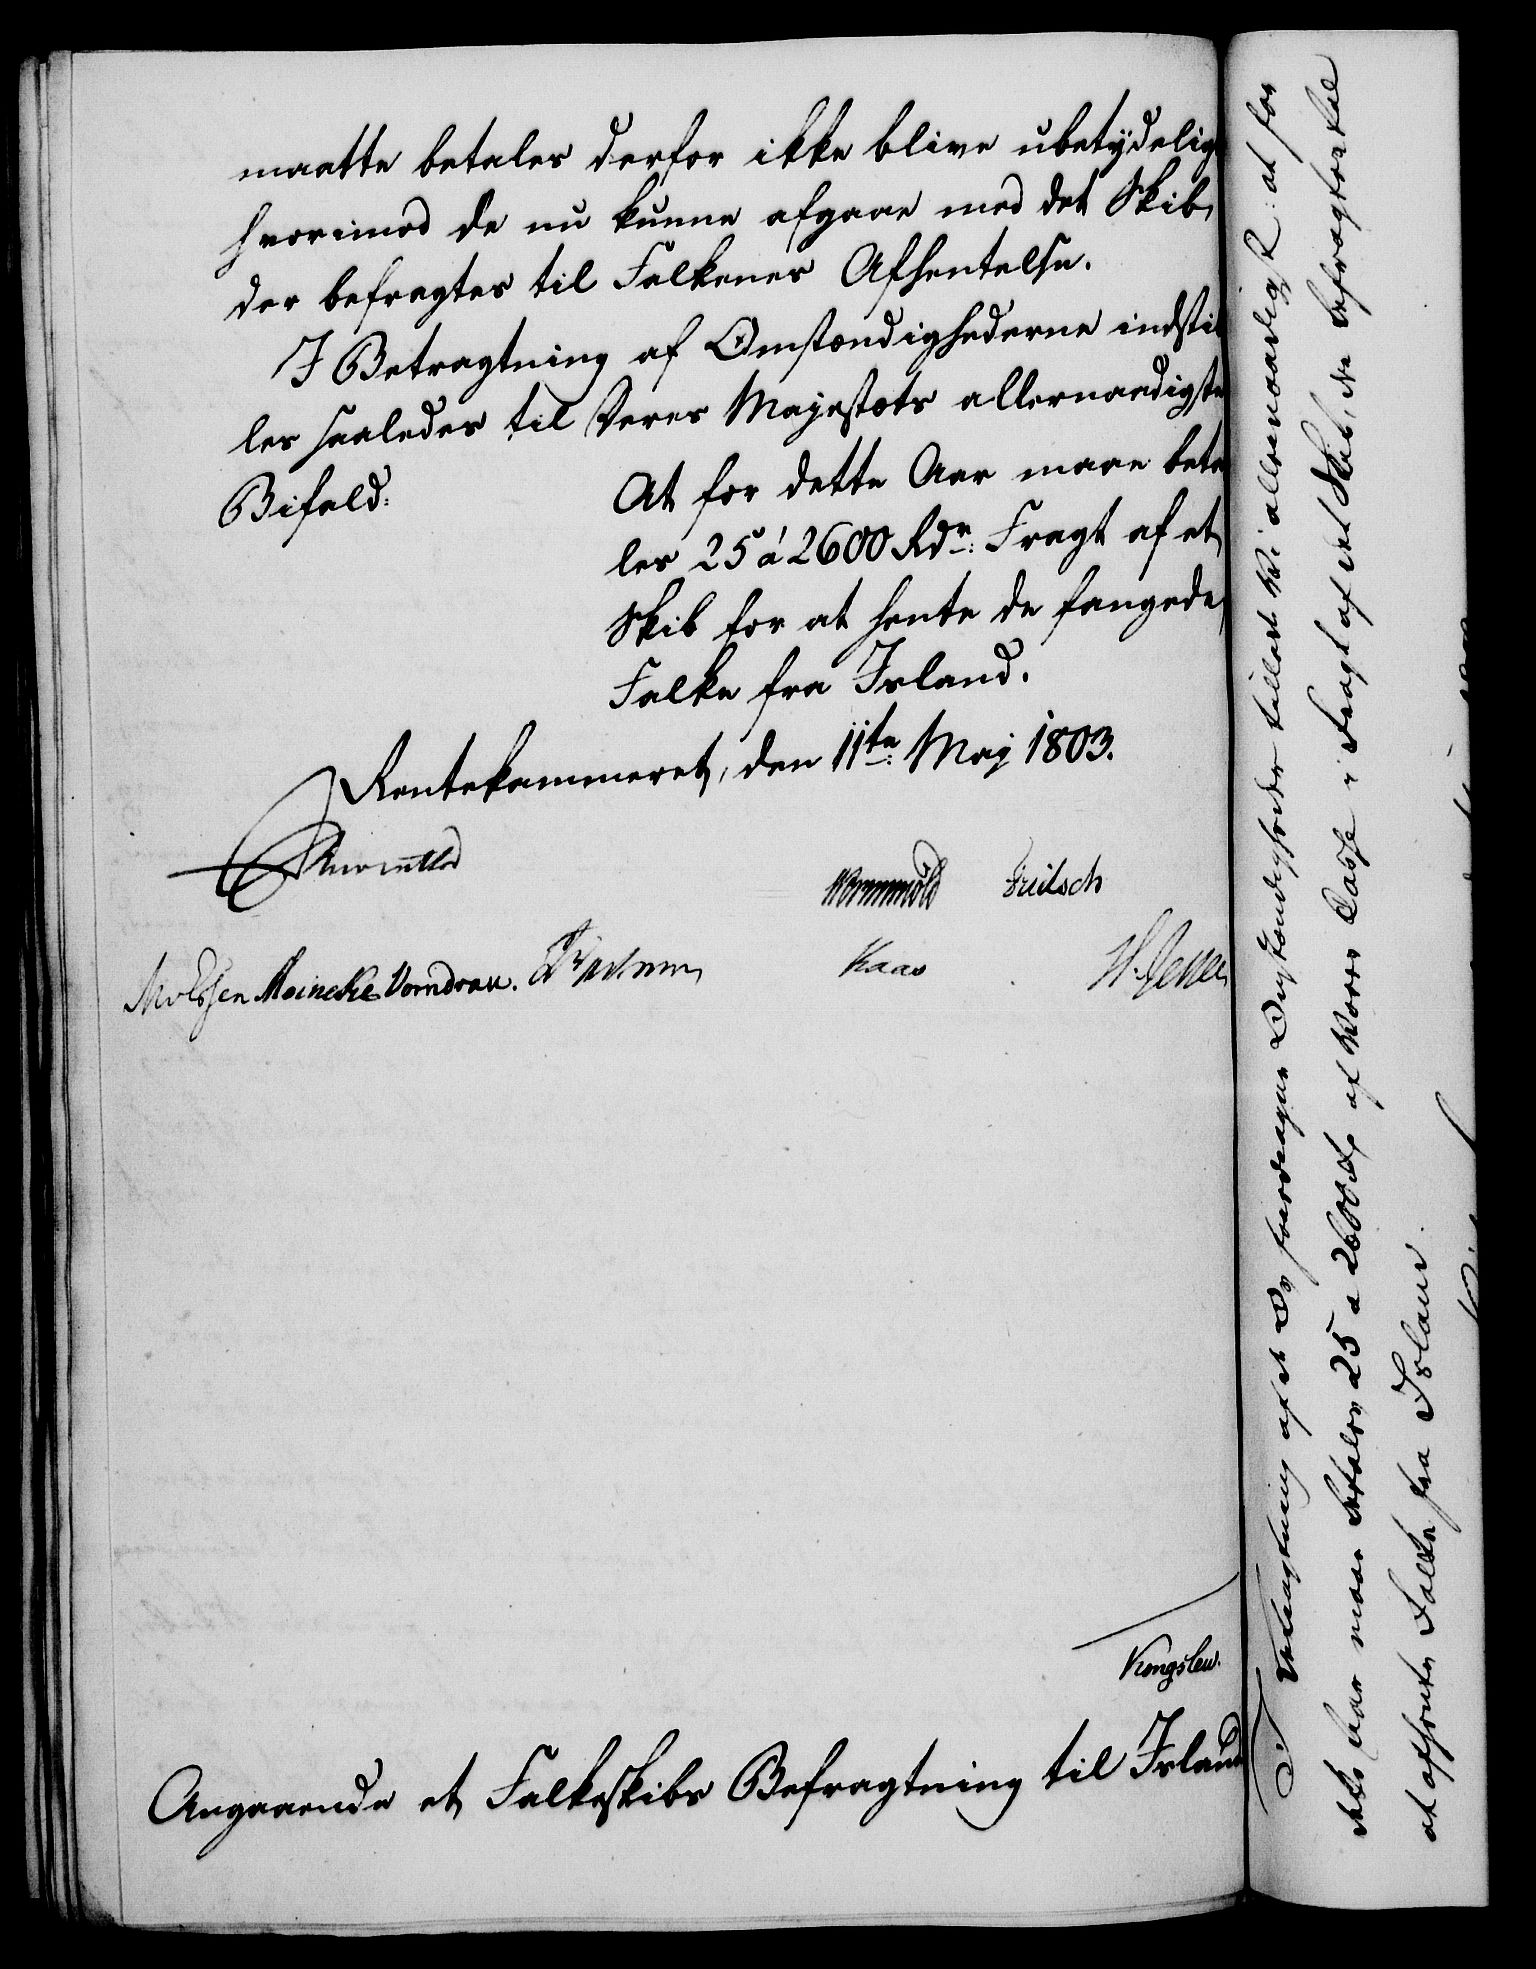 maatte betales derfor ikke blive ubetydelig
hvorimod de nu kunne afgaae med det Skib,
der befragtes til Falkenes Afhentelse.
I Betragtning af Omstændighederne indstil
les saaledes til Deres Majestæts allernaadigste
Bifald:
At for dette Aar maae beta
les 25 á 2600 Rdr: Fragt af et
Skib for at hente de fangede
Falke fra Island.
Rentekammeret, den 11te Maj 1803.
Reventlow
Wormskiold Fritsch
Meincke Vorndran.
Kaas
Kongslew.
Angaaende et Falkeskibs Befragtning til Island
I Betragtning af de Os foredragne Omstændigheder tillade Vi allernaadigst: at for
dette Aar maae betales 25 a 2600 af Vores Casse i Fragt af det Skib, der befragtes til
at afhente Falke fra Island.